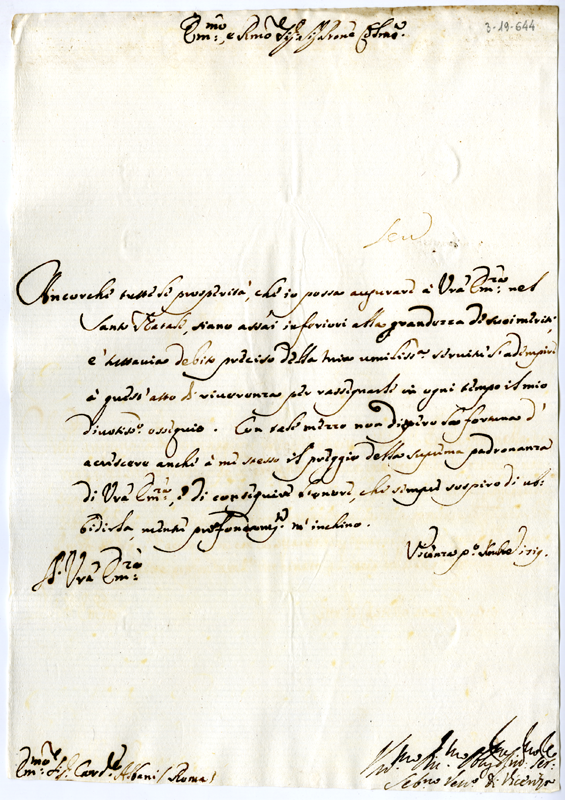 3-19-644
Em:mo e Rmo Sig.r Sig.r Prone Col:mo
Ancorchè tutte le prosperità, che io posso augurare à Vrã Em:za nel
Santo Natale, siano assai inferiori alla grandezza de suoi meriti;
è tuttavia debito preciso della mia umiliss.a servitù l'adempire
à quest'atto di riverenza per rassegnarle in ogni tempo il mio
divotiss.o ossequio. Con tale mezzo non dispero la fortuna d'
accrescere anche à me stesso il preggio della suprema padronanza
di Vrã Em:za, e di conseguire l'onore, che sempre sospiro di ub-
bidirla, mentre profondam.te m'inchino.
Di Vrã Em:za
Vicenza p.o
Em:mo Sig.r Card.le Albani Roma
Vmo Devmo Obligmo Ser:
Seb.no Ven.o di Vicenza